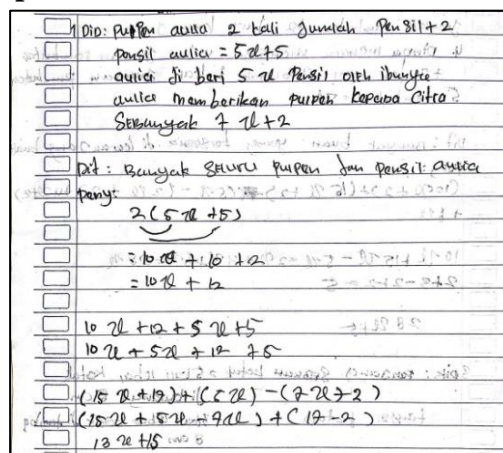 Did: Pulpen aulia 2 kali Jumlah Pensil + 2
Pensil aulia = 5x+5
aulia di beri 5x Pensil oleh ibunya
aulia memberikan pulpen kepada Citra
Sebanyak 7x+2
Dit: Banyak seluru pulpen dan pensil aulia
peny:
2(5x+5)
= 10x + 10 + 2
= 10x + 12
10x + 12 + 5x + 5
10x + 5x + 12 + 5
(15x + 17) + (5x) - (7x + 2)
(15x + 5x + 7x) + (17 - 2)
13x + 15